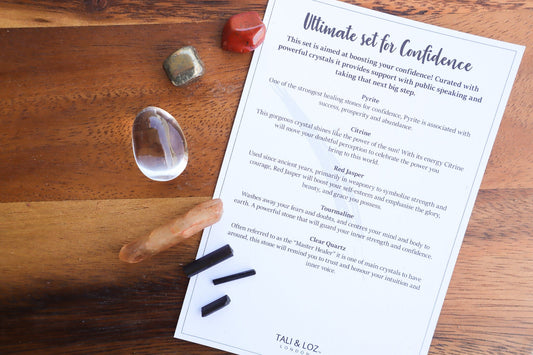 Ultimate set for Confidence
This set is aimed at boosting your confidence! Curated with
powerful crystals it provides support with public speaking and
taking that next big step.
Pyrite
One of the strongest healing stones for confidence, Pyrite is associated with
success, prosperity and abundance.
Citrine
This gorgeous crystal shines like the power of the sun! With its energy Citrine
will move your doubtful perception to celebrate the power you
bring to this world.
Red Jasper
Used since ancient years, primarily in weaponry to symbolize strength and
courage, Red Jasper will boost your self-esteem and emphasise the glory,
beauty, and grace you possess.
Tourmaline
Washes away your fears and doubts, and centres your mind and body to
earth. A powerful stone that will guard your inner strength and confidence.
Clear Quartz
Often referred to as the "Master Healer" it is one of main crystals to have
around, this stone will remind you to trust and honour your intuition and
inner voice.
TALI & LOZ
LONDON